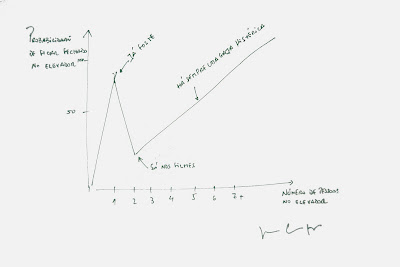 PROBABILIDADE
DE FICAR FECHADO
NO ELEVADOR
JÁ FOSTE
HÁ SEMPRE UMA GAJA HISTÉRICA
50
SÓ NOS FILMES
1 2 3 4 5 6 7+
NÚMERO DE PESSOAS
NO ELEVADOR